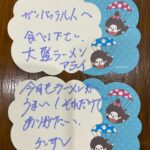 ガンバラルトへ
食べて下さい。
大盛ラーメン
アライ
今日もラーメンが
うまい！それだけで
ありがたい、
ケンサン